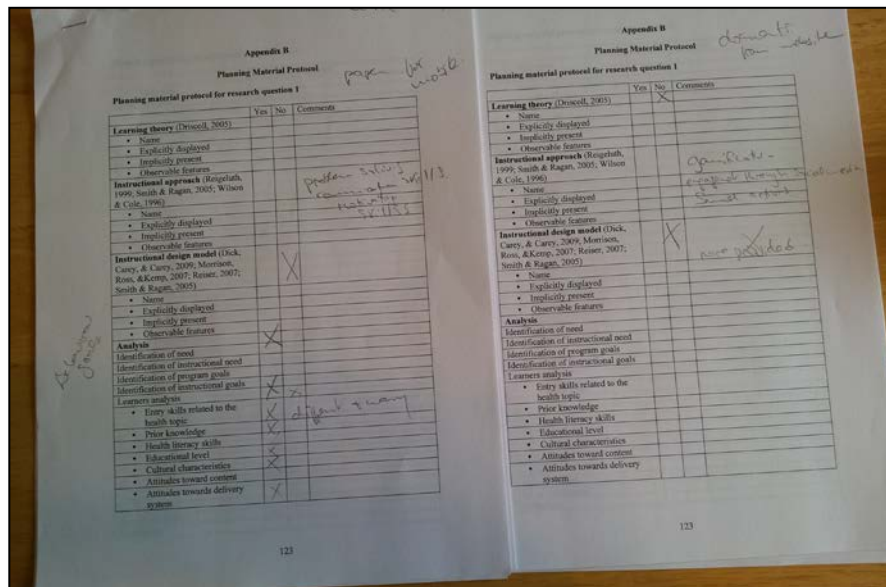 Appendix B
Planning Material Protocol
paper for
Planning material protocol for research question 1
Yes No Comments
Learning theory (Driscoll, 2005)
• Name
• Explicitly displayed
• Implicitly present
• Observable features
Instructional approach (Reigeluth,
1999; Smith & Ragan, 2005; Wilson
& Cole, 1996)
problem solving
communication skills
skills
• Name
• Explicitly displayed
• Implicitly present
• Observable features
Instructional design model (Dick,
Carey, & Carey, 2009; Morrison,
Ross, &Kemp, 2007; Reiser, 2007;
Smith & Ragan, 2005)
X
• Name
• Explicitly displayed
• Implicitly present
• Observable features
Analysis
X
Identification of need
Identification of instructional need
Identification of program goals
Identification of instructional goals
X
Learners analysis
X
• Entry skills related to the
health topic
X
• Prior knowledge
X
• Health literacy skills
• Educational level
X
• Cultural characteristics
X
• Attitudes toward content
• Attitudes towards delivery
system
X
123
Appendix B
Planning Material Protocol
from website
Planning material protocol for research question 1
Yes No Comments
Learning theory (Driscoll, 2005)
X
• Name
• Explicitly displayed
• Implicitly present
• Observable features
Instructional approach (Reigeluth,
1999; Smith & Ragan, 2005; Wilson
& Cole, 1996)
through
• Name
• Explicitly displayed
• Implicitly present
• Observable features
Instructional design model (Dick,
Carey, & Carey, 2009; Morrison,
Ross, &Kemp, 2007; Reiser, 2007;
Smith & Ragan, 2005)
X
none provided
• Name
• Explicitly displayed
• Implicitly present
• Observable features
Analysis
Identification of need
Identification of instructional need
Identification of program goals
Identification of instructional goals
Learners analysis
• Entry skills related to the
health topic
• Prior knowledge
• Health literacy skills
• Educational level
• Cultural characteristics
• Attitudes toward content
• Attitudes towards delivery
system
123